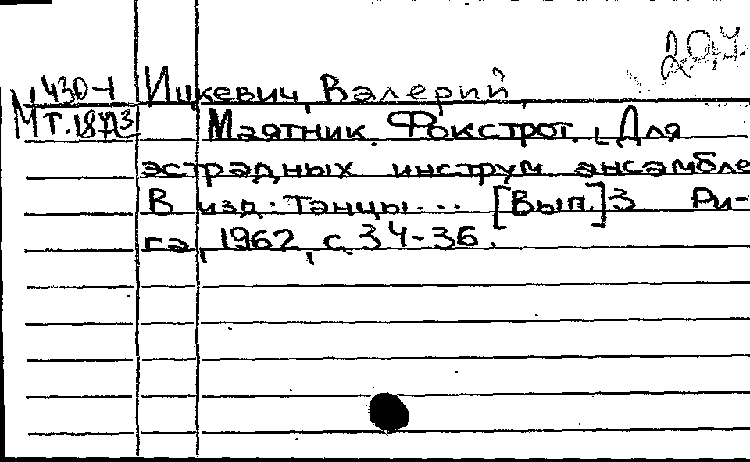 20,4
430-1 Ицкевич, Валерий
М Т.187Д3 Маятник. Фокстрот. [Для
эстрадных инструм. ансамбле
В изд.: Танцы... [Вып.] 3 Ри-
га, 1962, с. 34-36.